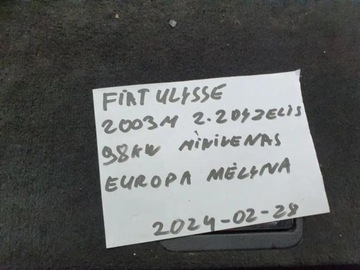 FIAT ULYSSE
2003M 2.2DYZELIS
98KW MINIVENAS
EUROPA MĖLYNA
2024-02-28